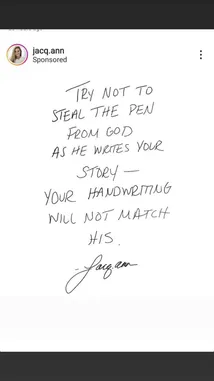 jacq.ann
Sponsored
TRY NOT TO
STEAL THE PEN
FROM GOD
AS HE WRITES YOUR
STORY —
YOUR HANDWRITING
WILL NOT MATCH
HIS.
-Jacq.ann